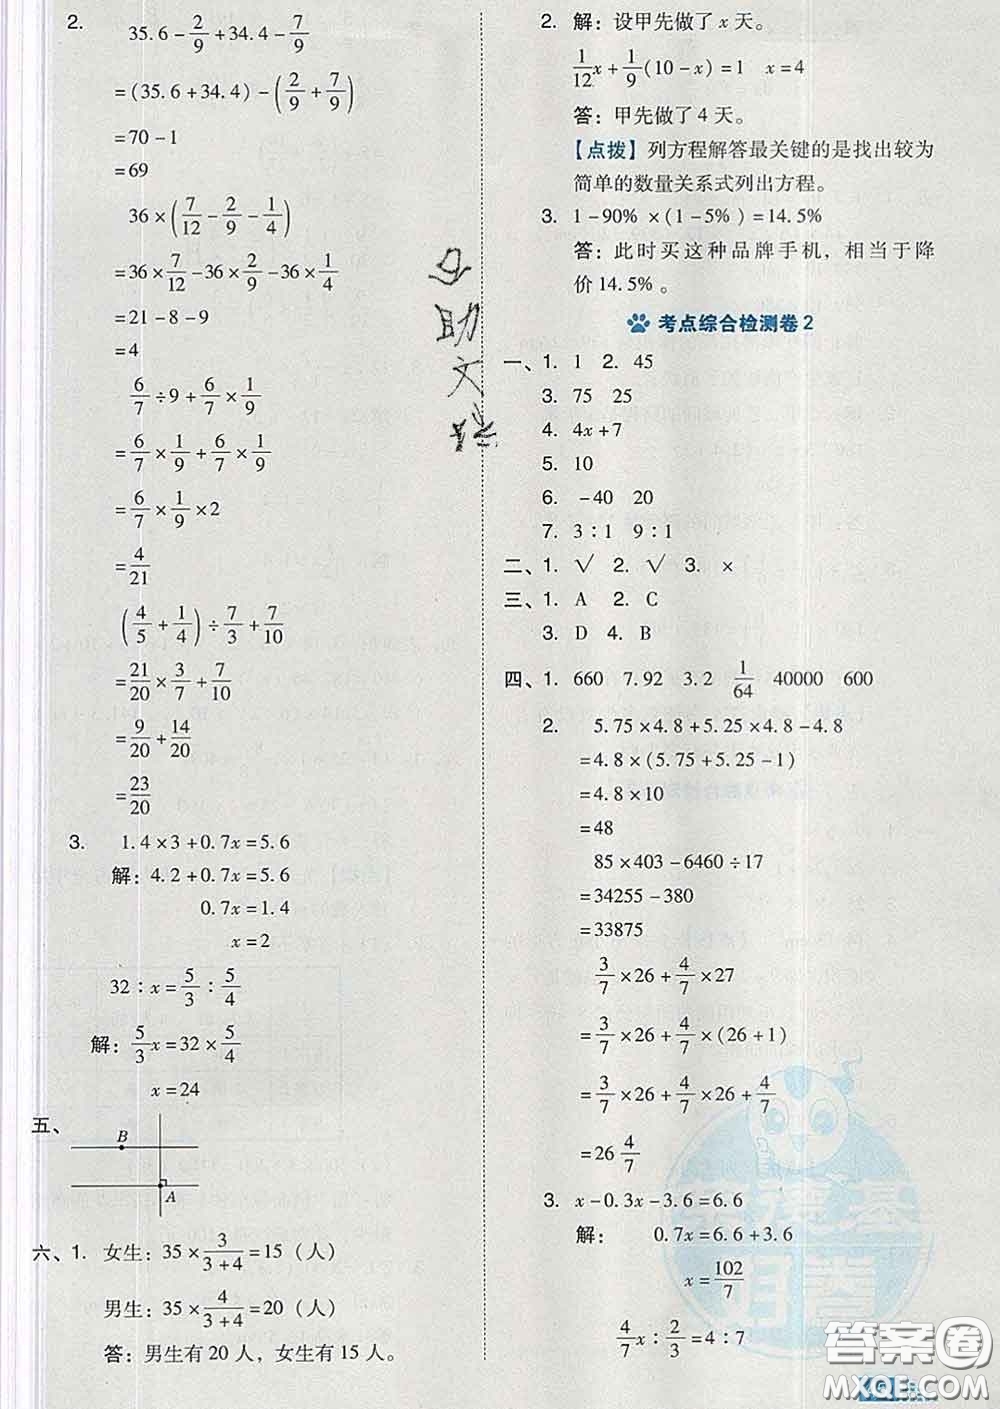 2. 35.6-2/9+34.4-7/9
=(35.6+34.4)-(2/9+7/9)
=70-1
=69
36×(7/12-2/9-1/4)
=36×7/12-36×2/9-36×1/4
=21-8-9
=4
6/7÷9+6/7×1/9
=6/7×1/9+6/7×1/9
=6/7×1/9×2
=4/21
(4/5+1/4)÷7/3+7/10
=21/20×3/7+7/10
=9/20+14/20
=23/20
3. 1.4×3+0.7x=5.6
解:4.2+0.7x=5.6
0.7x=1.4
x=2
32:x=5/3:5/4
解:5/3x=32×5/4
x=24
五、
B
A
六、1. 女生:35×3/(3+4)=15(人)
男生:35×4/(3+4)=20(人)
答:男生有20人,女生有15人。
助
文
2. 解:设甲先做了x天。
1/12x+1/9(10-x)=1 x=4
答:甲先做了4天。
【点拨】列方程解答最关键的是找出较为
简单的数量关系式列出方程。
3. 1-90%×(1-5%)=14.5%
答:此时买这种品牌手机,相当于降
价14.5%。
考点综合检测卷2
一、1. 1 2. 45
3. 75 25
4. 4x+7
5. 10
6. -40 20
7. 3:1 9:1
二、1. √ 2. √ 3. ×
三、1. A 2. C
3. D 4. B
四、1. 660 7.92 3.2 1/64 40000 600
2. 5.75×4.8+5.25×4.8-4.8
=4.8×(5.75+5.25-1)
=4.8×10
=48
85×403-6460÷17
=34255-380
=33875
3/7×26+4/7×27
=3/7×26+4/7×(26+1)
=3/7×26+4/7×26+4/7
=26 4/7
3. x-0.3x-3.6=6.6
解: 0.7x=6.6+3.6
x=102/7
4/7x:2/3=4:7
答案圈
MXQE.COM